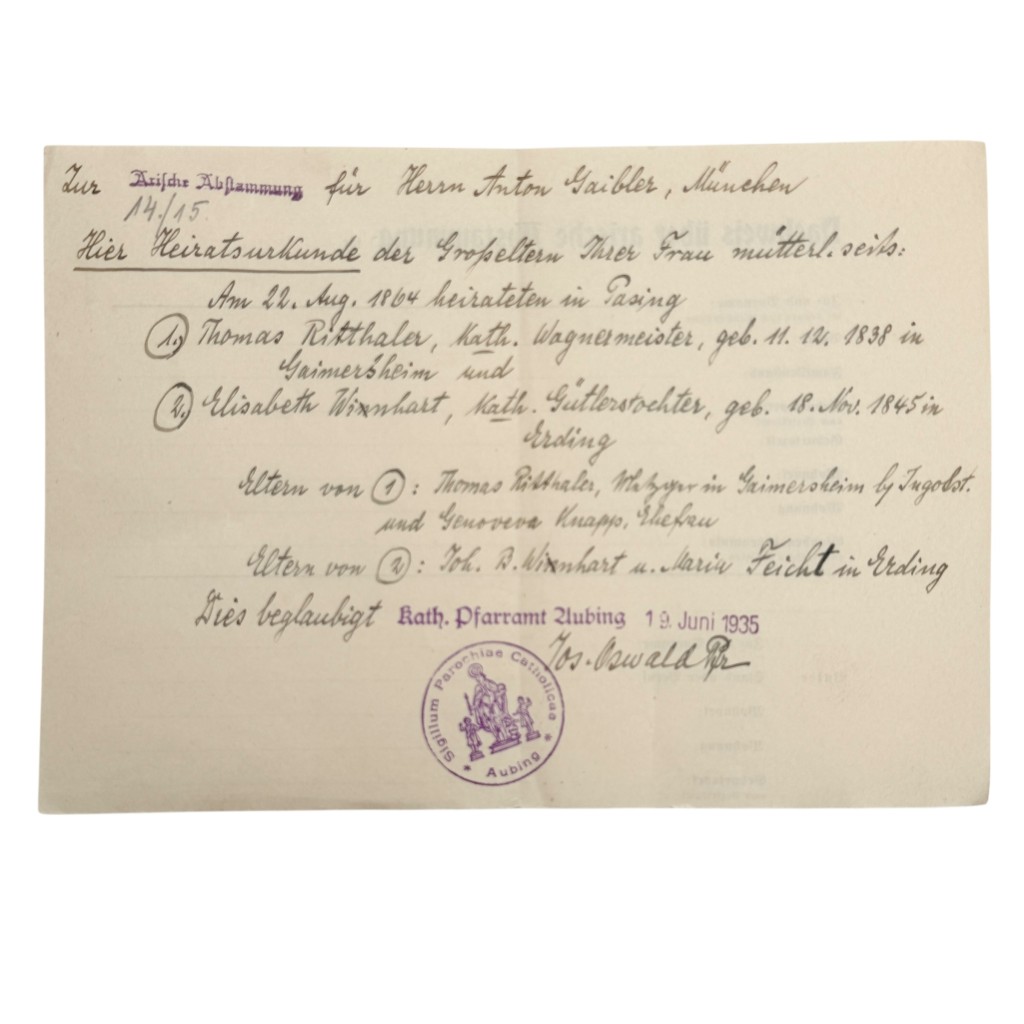 Zur Arische Abstammung für Herrn Anton Gaibler, München
14./15.
Hier Heiratsurkunde der Großeltern Ihrer Frau mütterl. seits:
Am 22. Aug. 1864 heirateten in Pasing
1.) Thomas Ritthaler, Kath. Wagnermeister, geb. 11. 12. 1838 in
Gaimersheim und
2.) Elisabeth Winnhart, Kath. Gütlerstochter, geb. 18. Nov. 1845 in
Erding
Eltern von 1): Thomas Ritthaler, Metzger in Gaimersheim b/ Ingolst.
und Genoveva Knapp, Ehefrau
Eltern von 2): Joh. B. Winnhart u. Maria Feicht in Erding
Dies beglaubigt Kath. Pfarramt Aubing 19. Juni 1935
Jos. Oswald Pfr
Sigillum Parochiae Catholicae * Aubing *